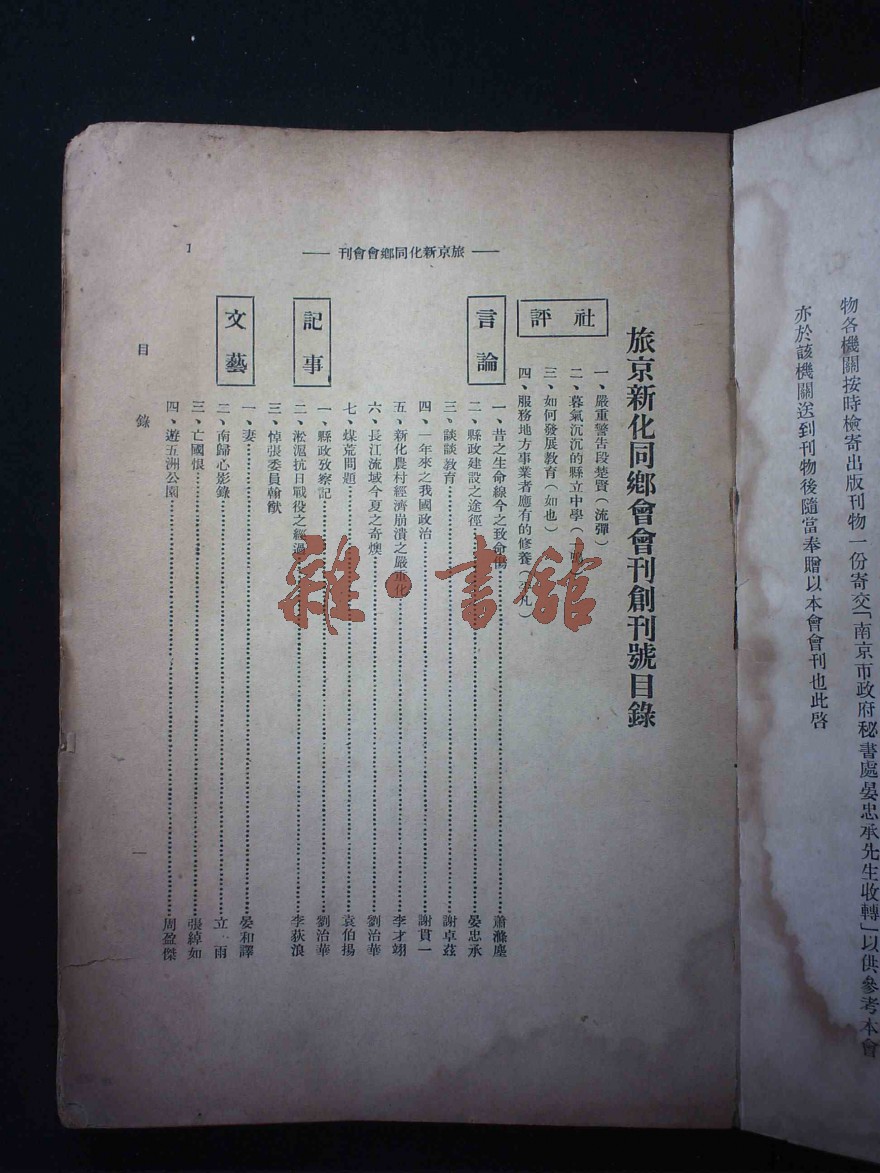 物各機關按時檢寄出版刊物一份寄交「南京市政府秘書處晏忠承先生收轉」以供參考本會
亦於該機關送到刊物後隨當奉贈以本會會刊也此啓
旅京新化同鄉會會刊
1
旅京新化同鄉會會刊創刊號目錄
社評
一、嚴重警告段楚賢（流彈）
二、暮氣沉沉的縣立中學（一
三、如何發展教育（如也）
四、服務地方事業者應有的修養（平凡）
言論
一、昔之生命線今之致命傷 蕭滌塵
二、縣政建設之途徑 晏忠承
三、談談教育 謝卓茲
四、一年來之我國政治 謝貫一
五、新化農村經濟崩潰之嚴重化 李才翊
六、長江流域今夏之奇燠 劉治華
七、煤荒問題 袁伯揚
記事
一、縣政攷察記 劉治華
二、淞滬抗日戰役之經過 李荻浪
三、悼張委員翰猷
文藝
一、妻 晏和譯
二、南歸心影錄 立雨
三、亡國恨 張綽如
四、遊五洲公園 周盈傑
目錄
一
雜·書館